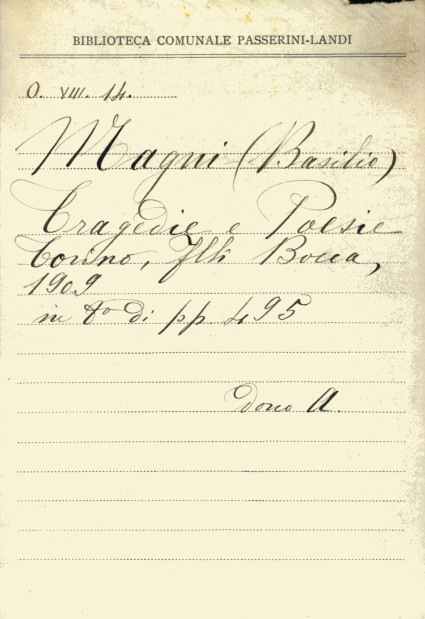 BIBLIOTECA COMUNALE PASSERINI-LANDI
O. VIII. 14.
Magni (Basilio)
Tragedie e Poesie
Torino, Flli Bocca,
1909
in 8º di pp 495
dono A.